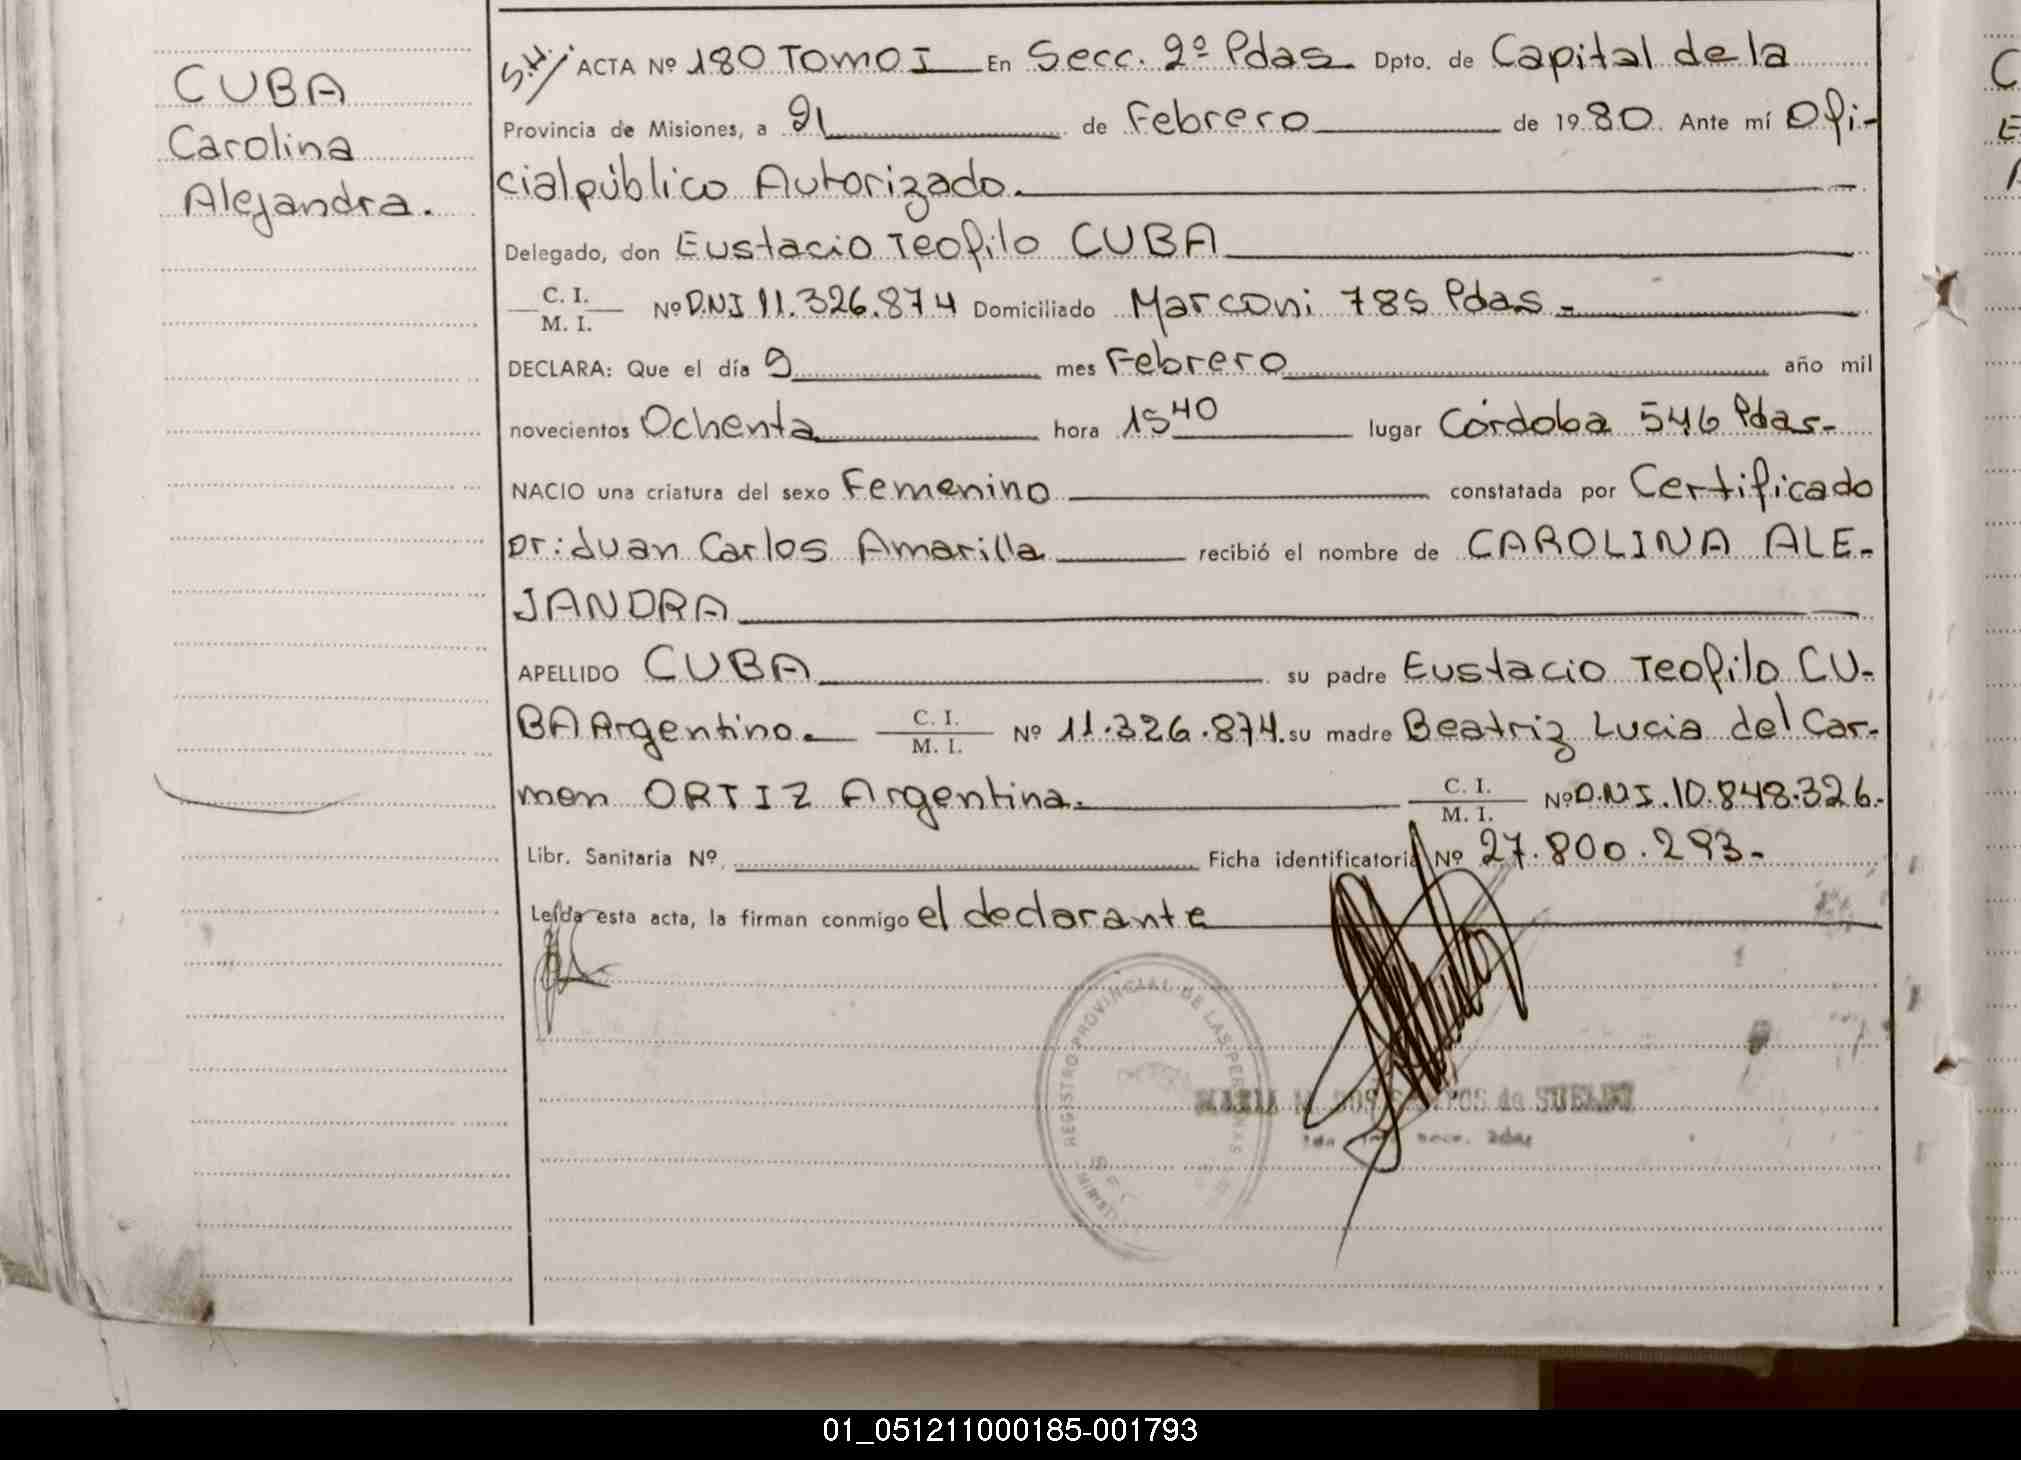 CUBA
Carolina
Alejandra.
S.H. ACTA Nº 180 TOMO I En Secc. 2º Pdas Dpto. de Capital de la
Provincia de Misiones, a 21 de Febrero de 1980 Ante mí Ofi-
cial público Autorizado.
Delegado, don Eustacio Teofilo CUBA
C. I.
M. I. Nº D.N.I 11.326.874 Domiciliado Marconi 785 Pdas.-
DECLARA: Que el día 9 mes Febrero año mil
novecientos Ochenta hora 15 40 lugar Córdoba 546 Pdas.-
NACIO una criatura del sexo Femenino constatada por Certificado
Dr: Juan Carlos Amarilla recibió el nombre de CAROLINA ALE-
JANDRA
APELLIDO CUBA su padre Eustacio Teofilo CU-
BA Argentino.- C. I. M. I. Nº 11.326.874. su madre Beatriz Lucia del Car-
men ORTIZ Argentina. C. I. M. I. Nº D.N.I. 10.848.326.-
Libr. Sanitaria Nº Ficha identificatoria Nº 27.800.293.-
Leída esta acta, la firman conmigo el declarante
REGISTRO PROVINCIAL DE LAS PERSONAS
MARIA M. DOS SANTOS de
01_051211000185-001793